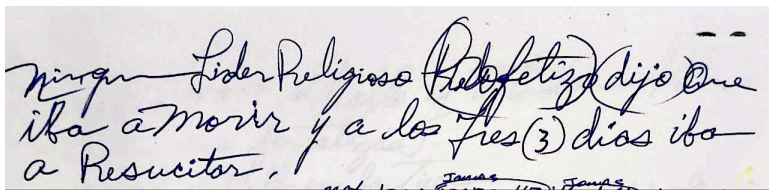 Ningun Lider Religioso (Profetizo) (dijo) Que
iba a Morir y a los Tres (3) dias iba
a Resucitar.
Jamas Jamas